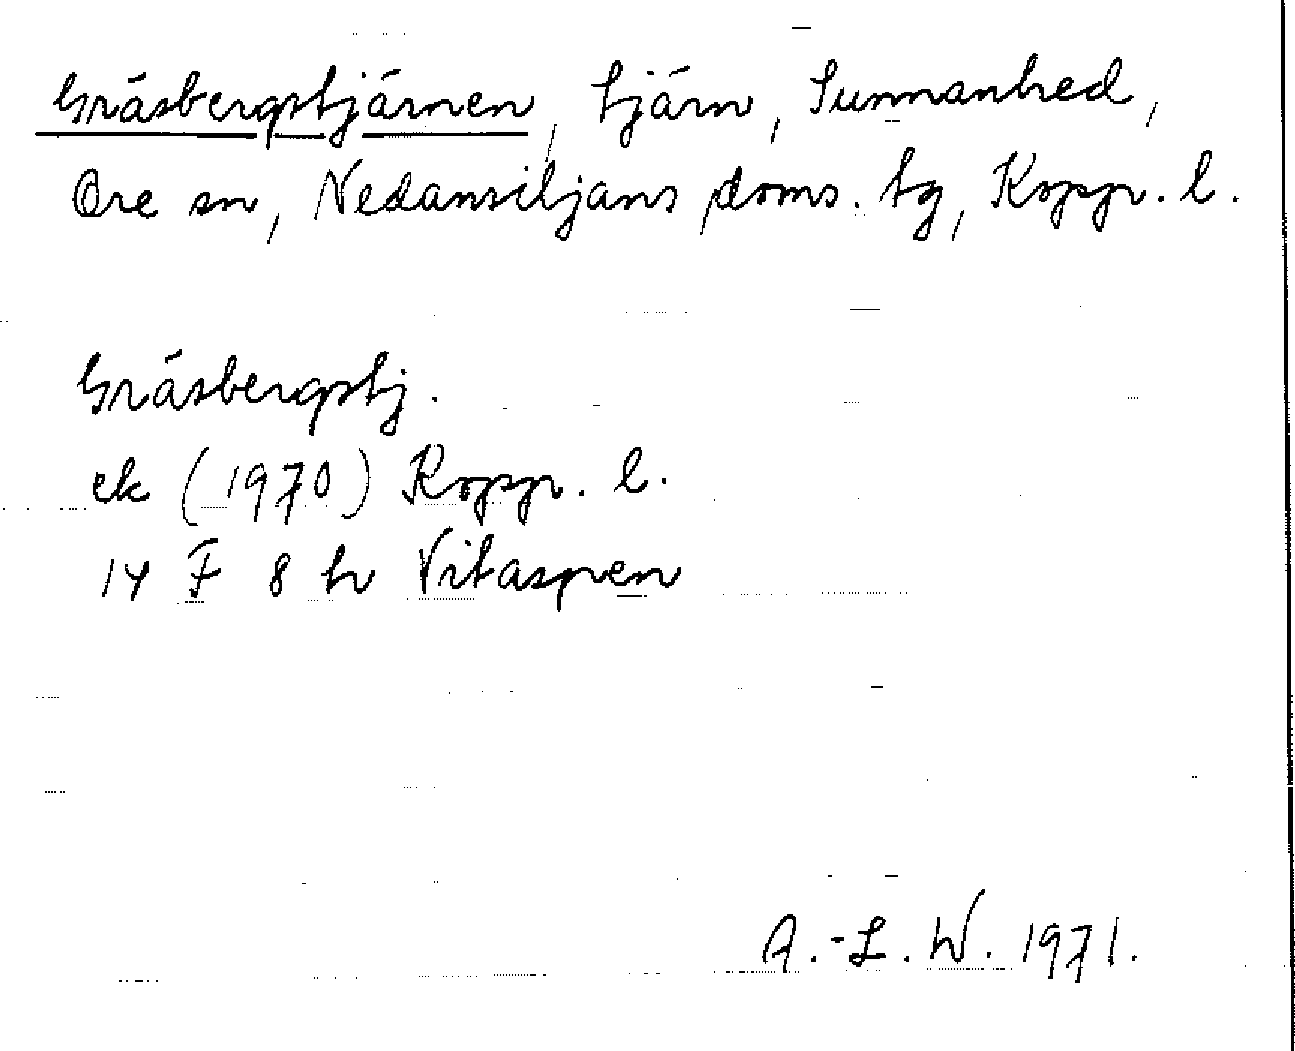 Gräsbergstjärnen, tjärn, Sunnanhed,
Ore sn, Nedansiljans doms. tg, Kopp. l.
Gräsbergstj.
ek (1970) Kopp. l.
14 F 8 h Vitaspen
A.-L. W. 1971.